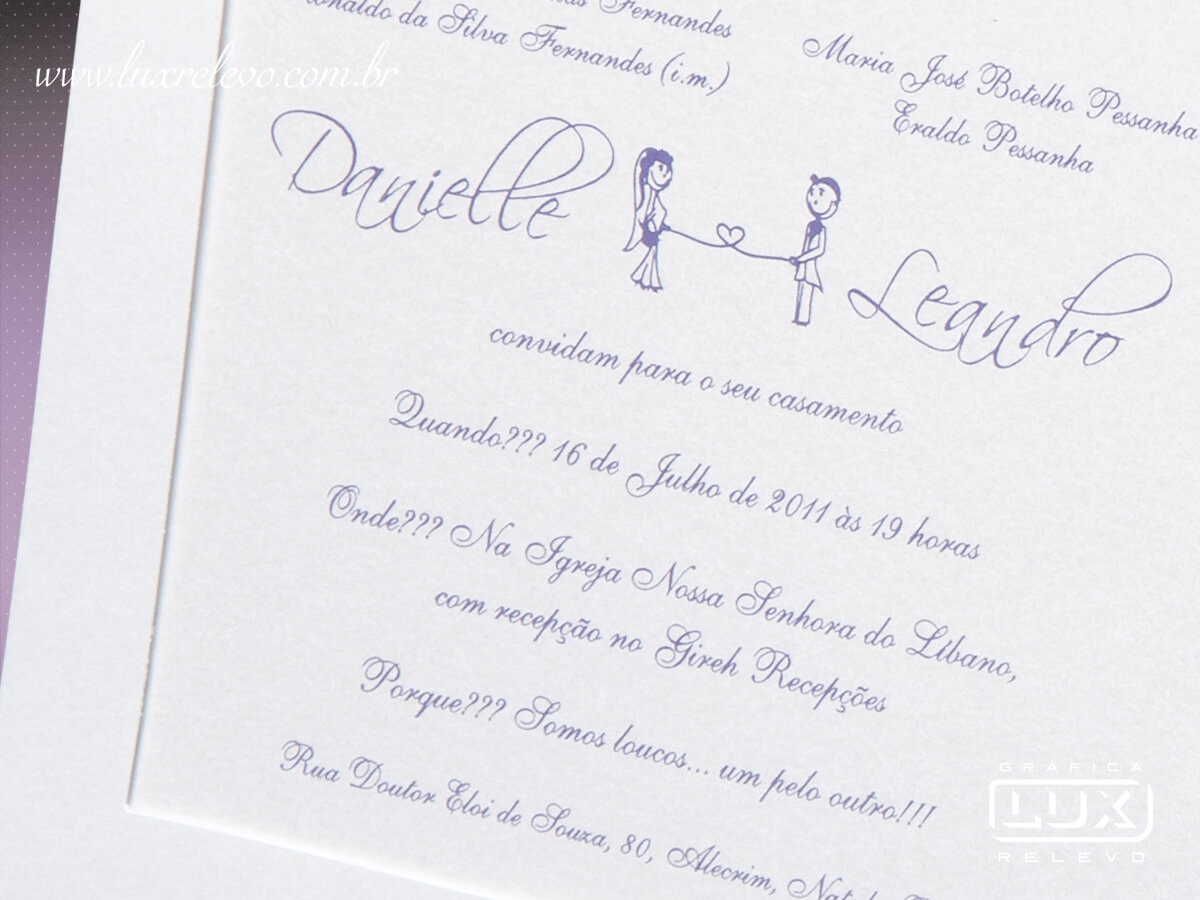 Fernandes
da Silva Fernandes (i.m.)
Maria José Botelho Pessanha
Eraldo Pessanha
www.luxrelevo.com.br
Danielle
Leandro
convidam para o seu casamento
Quando??? 16 de Julho de 2011 às 19 horas
Onde??? Na Igreja Nossa Senhora do Líbano,
com recepção no Gireh Recepções
Porque??? Somos loucos... um pelo outro!!!
Rua Doutor Eloi de Souza, 80, Alecrim,
GRAFICA
LUX
RELEVO